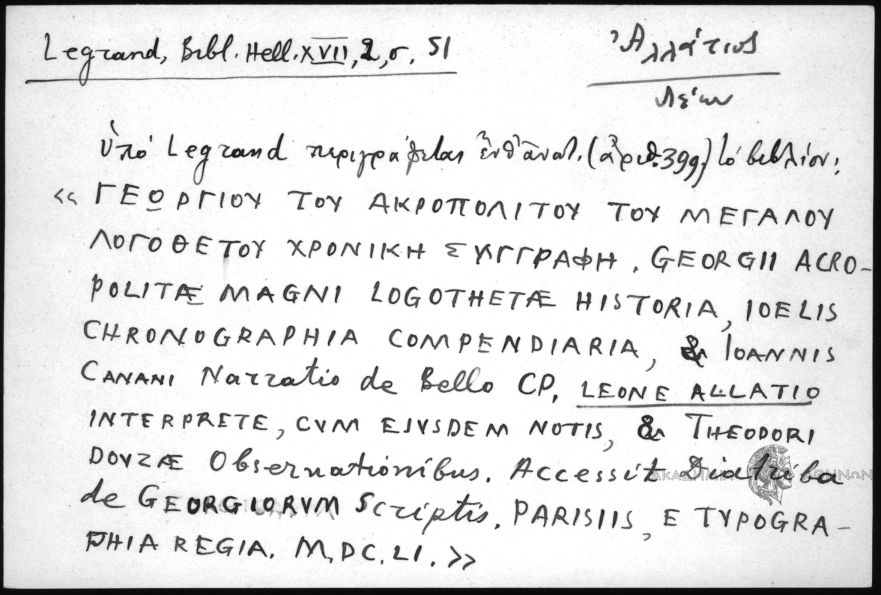 Legrand, Bibl. Hell. XVII, 2, σ. 51
Ἀλλάτιος
Λέων
ὑπό Legrand περιγράφεται ἐνθ' ἀνωτ. (ἀριθ. 399) τό βιβλίον:
«ΓΕΩΡΓΙΟΥ ΤΟΥ ΑΚΡΟΠΟΛΙΤΟΥ ΤΟΥ ΜΕΓΑΛΟΥ
ΛΟΓΟΘΕΤΟΥ ΧΡΟΝΙΚΗ ΣΥΓΓΡΑΦΗ. GEORGII ACRO-
POLITÆ MAGNI LOGOTHETÆ HISTORIA, IOELIS
CHRONOGRAPHIA COMPENDIARIA, & IOANNIS
CANANI Narratio de Bello CP, LEONE ALLATIO
INTERPRETE, CVM EJVSDEM NOTIS, & THEODORI
DOVZÆ Observationibus. Accessit Diatriba
de GEORGIORVM Scriptis. PARISIIS, E TYPOGRA-
PHIA REGIA. M,DC.LI.»